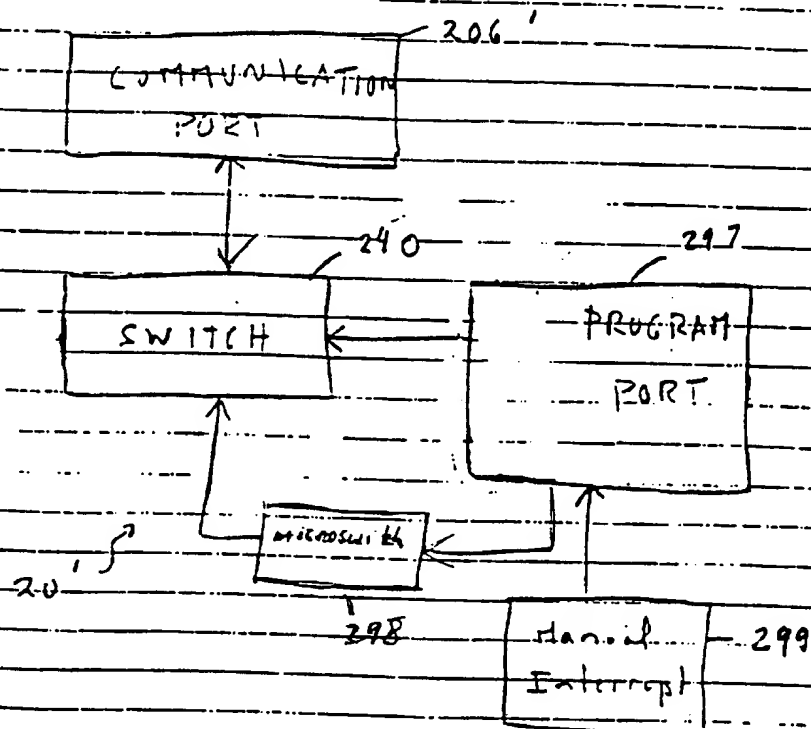 206'
COMMUNICATION
PORT
240
297
SWITCH
PROGRAM
PORT.
microswitch
20'
298
Manual
299
Interrupt